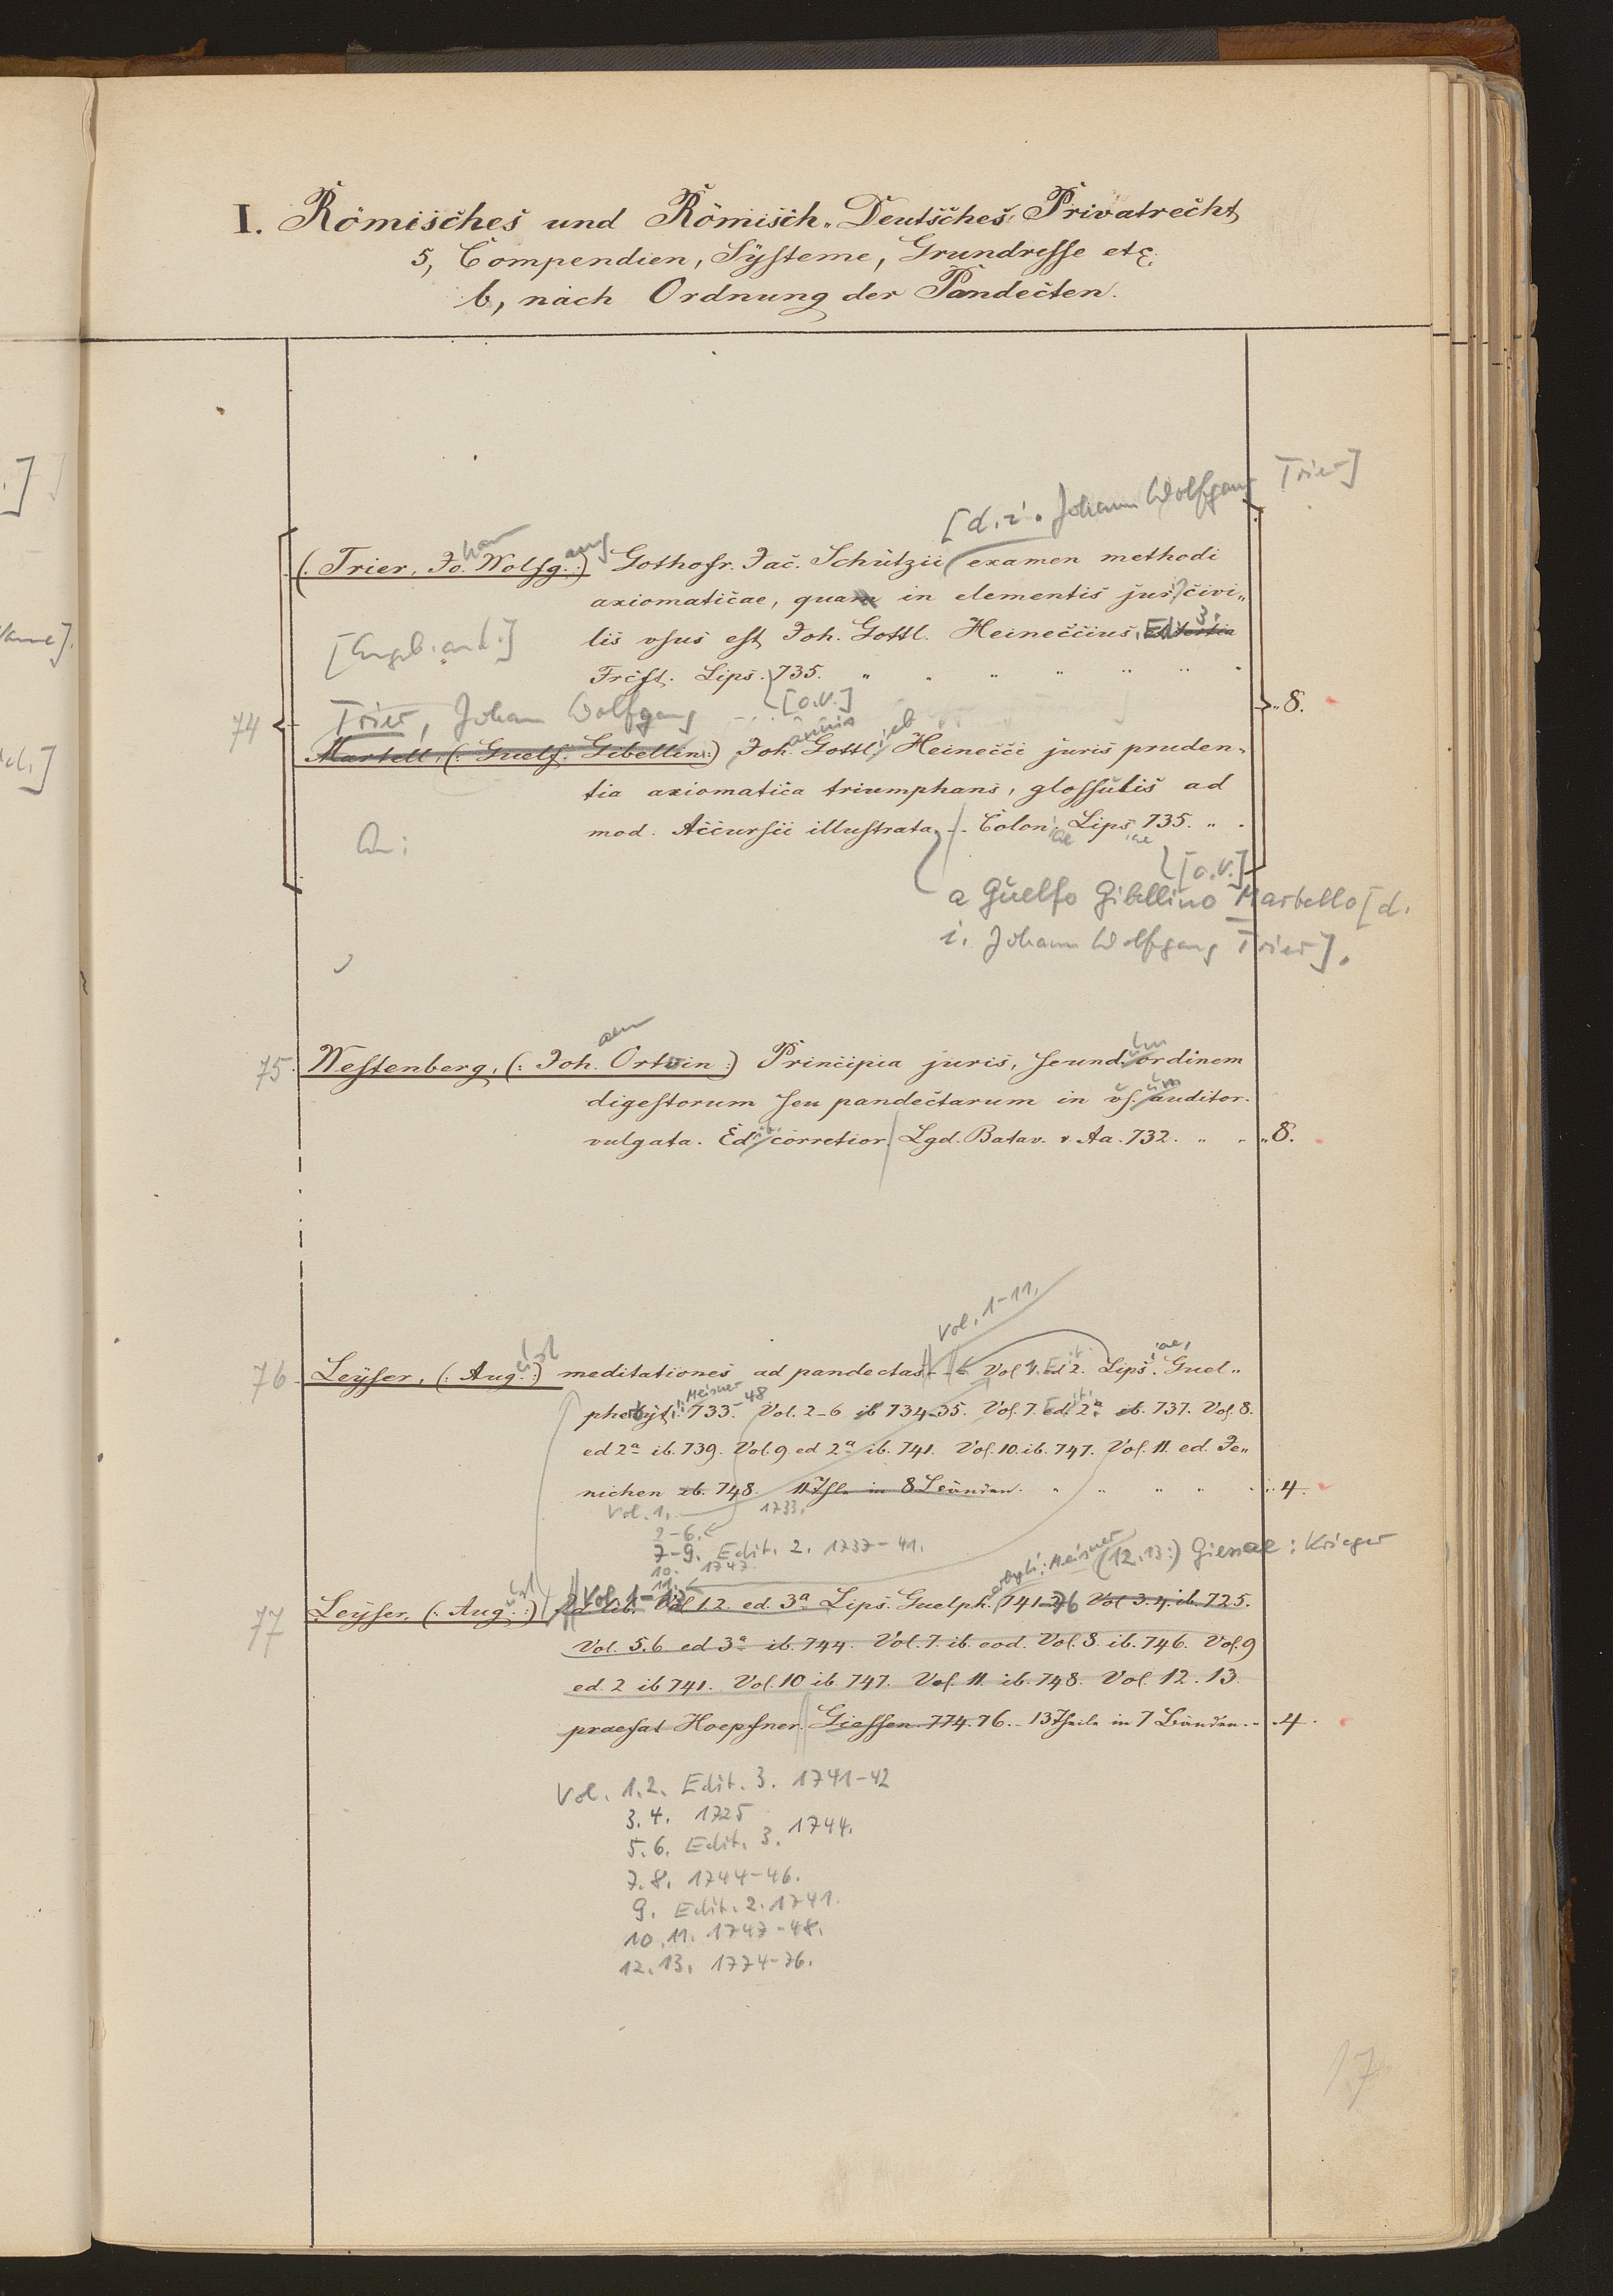 I. Römisches und Römisch-Deutsches Privatrecht
5, Compendien, Systeme, Grundrisse etc.
b, nach Ordnung der Pandecten.
[d. i. Johann Wolfgang Trier]
(: Trier, Jo. Wolfg. :) Gothofr. Jac. Schützii examen methodi
axiomaticae, quam in elementis juris civi-
lis usus est Joh. Gottl. Heineccius. Ed. 3.
Frcft. Lips. 735.
[o.V.]
74 Trier, Johann Wolfgang
Martell, (: Guelf. Gibellin :) Joh. Gottl. Heinecci juris pruden-
8.
tia axiomatica triumphans, glossulis ad
mod. Accursii illustrata. Colon. Lips. 735.
[o.V.]
a Guelfo Gibellino Martello [d.
i. Johann Wolfgang Trier].
75 Westenberg, (: Joh. Ortuin :) Principia juris, secund. ordinem
digestorum seu pandectarum in us. auditor.
vulgata. Ed. corretior. Lgd. Batav. 732. 8.
Vol. 1-11.
76 Leyser, (: Aug. :) meditationes ad pandectas. Vol. 1. ed 2. Lips. Guel-
pherbyt. : Meisner 733. -48 Vol. 2-6 ib 734-35. Vol. 7. ed. 2a ib. 737. Vol. 8.
ed 2a ib. 739. Vol. 9 ed 2a ib. 741. Vol. 10. ib. 747. Vol. 11. ed. Je-
nichen ib. 748. 11 Thle in 8 Bänden. 4.
Vol. 1. 1733.
2-6.
7-9. Edit. 2. 1737-41.
10. 1747.
11.
erbyti: Meisner (12.13:) Giessae: Krieger
77 Leyser, (: Aug. :) Id. lib. Vol. 1-13 Vol 1.2. ed. 3a Lips. Guelph. 741-76 Vol 3.4. ib. 725.
Vol. 5.6 ed 3a ib. 744. Vol. 7. ib. eod. Vol. 8. ib. 746. Vol. 9
ed. 2 ib 741. Vol. 10 ib. 747. Vol. 11. ib. 748. Vol. 12. 13.
praefat Hoepfner. Giessen 774. 76. 13 Theile in 7 Bänden. 4.
Vol. 1.2. Edit. 3. 1741-42
3.4. 1725
5.6. Edit. 3. 1744.
7.8. 1744-46.
9. Edit. 2. 1741.
10.11. 1747-48.
12.13. 1774-76.
17